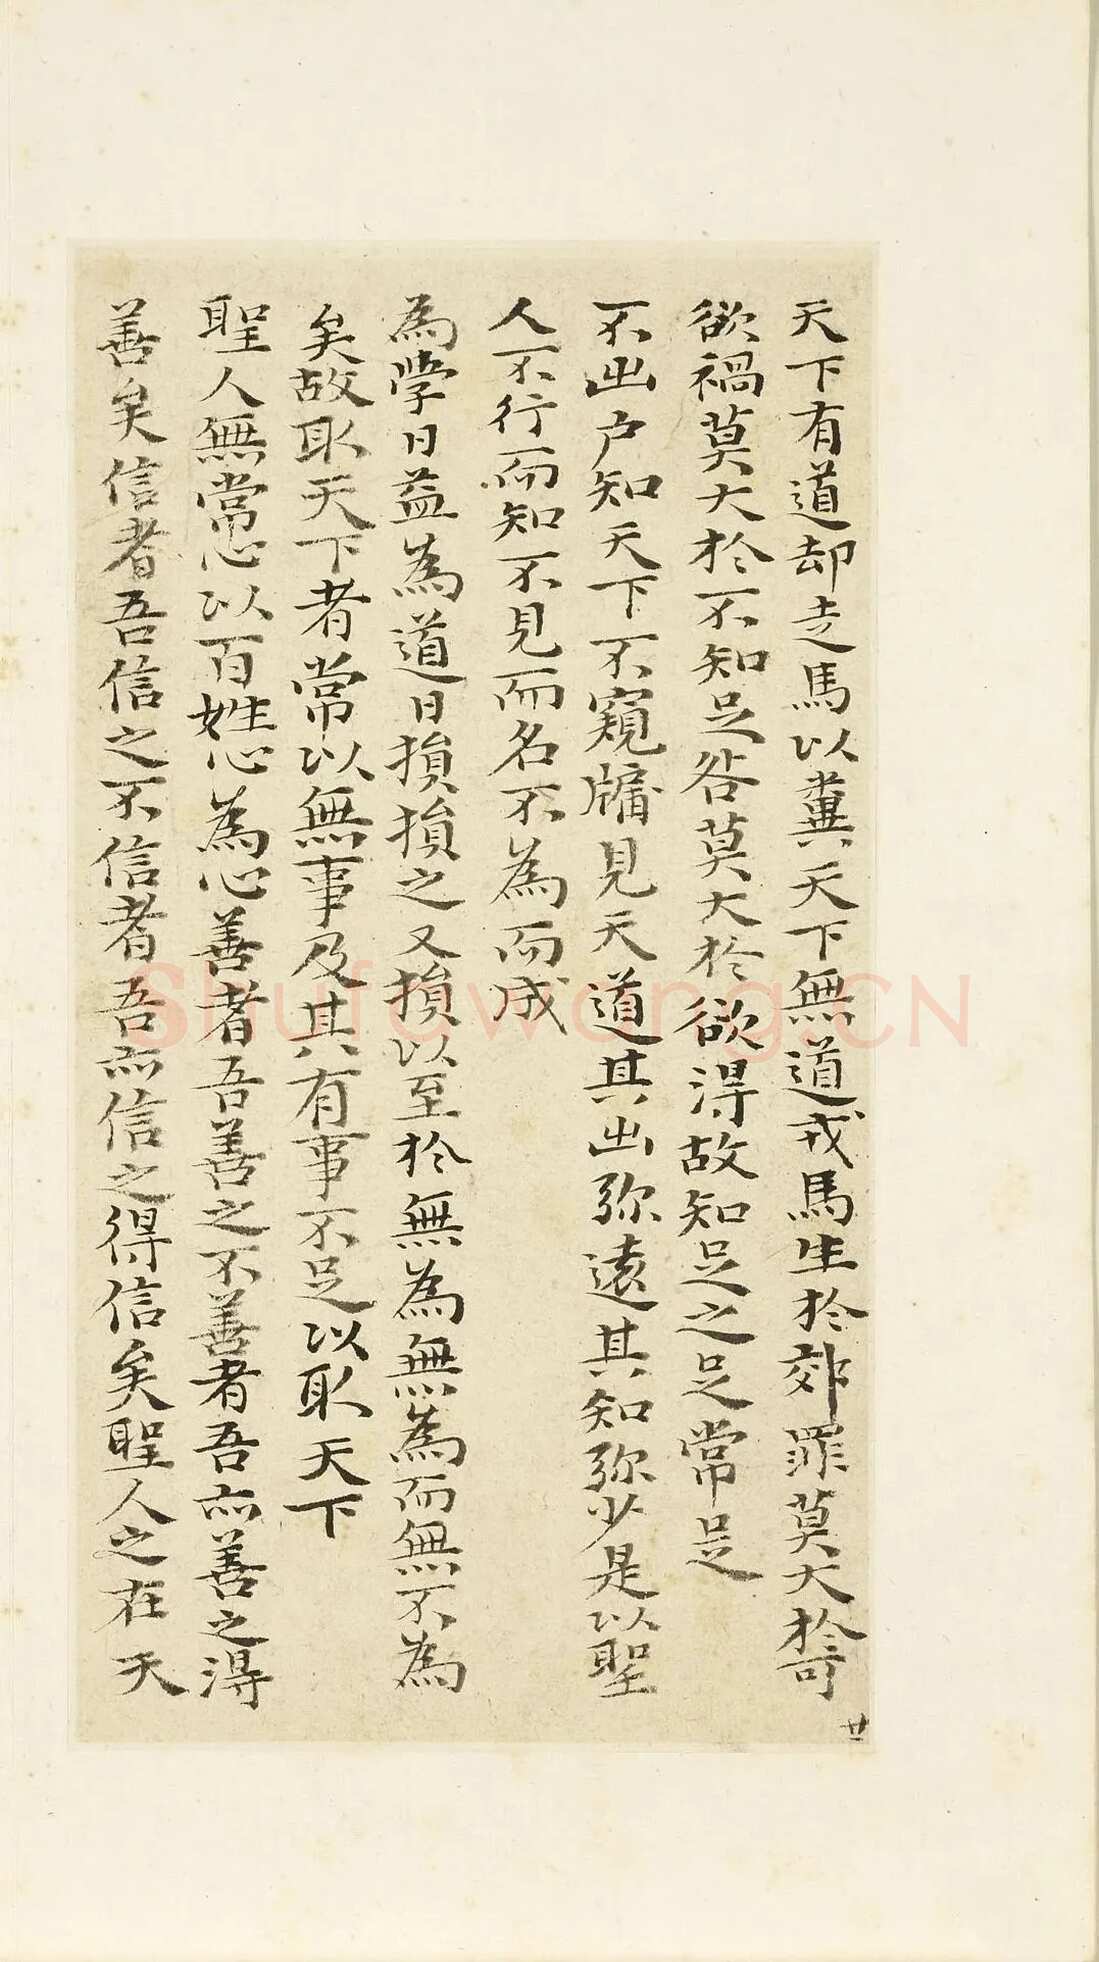 天下有道却走馬以糞天下無道戎馬生於郊罪莫大於可
欲禍莫大於不知足咎莫大於欲得故知足之足常足
不出户知天下不窺牖見天道其出弥遠其知弥少是以聖
人不行而知不見而名不為而成
為學日益為道日損損之又損以至於無為無為而無不為
矣故取天下者常以無事及其有事不足以取天下
聖人無常心以百姓心為心善者吾善之不善者吾亦善之得
善矣信者吾信之不信者吾亦信之得信矣聖人之在天
廿
Shufawang.CN